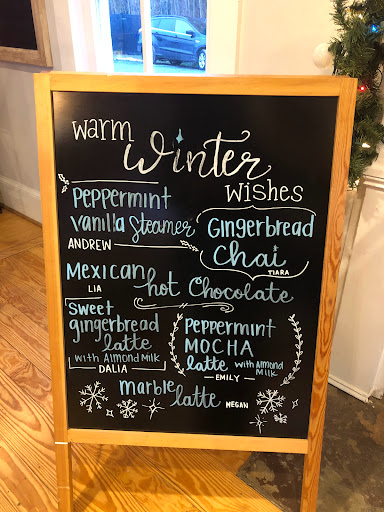 warm
winter
wishes
Peppermint
vanilla Steamer
ANDREW
Gingerbread
Chai
TIARA
Mexican hot Chocolate
LIA
Sweet
gingerbread
latte
with Almond Milk
DALIA
Peppermint
MOCHA
latte with Almond Milk
EMILY
marble latte MEGAN